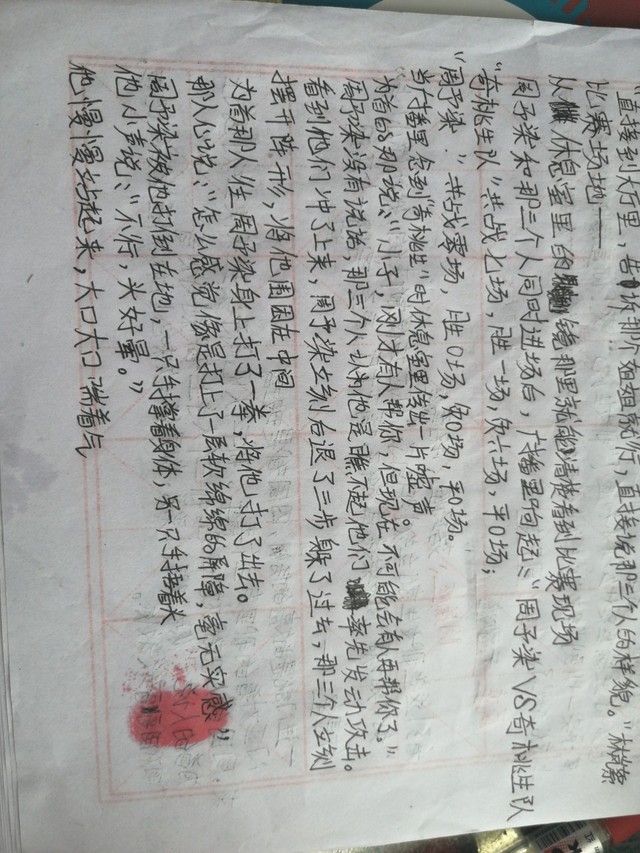 "直接到大厅里，告诉那个姐姐就行，直接说那三个人的样貌。"林
比赛场地——
从休息室里的镜那里就能清楚看到比赛现场
周子染和那三个人同时进场台，广播里响起："周子染VS奇桃生队
"奇桃生队"共战七场，胜一场，负六场，平0场；
"周子染"共战零场，胜0场，负0场，平0场。
当广播里念到"奇桃生"时休息室里传出一片嘘声。
为首的那说："小子，刚才有人帮你，但现在不可能会有人再帮你了。"
周子染没有说话，那三个人认为他是瞧不起他们率先发动攻击。
看到他们冲了上来，周子染立刻后退了三步躲了过去，那三个人立刻
摆开阵形，将他围困在中间
为首那人往周子染身上打了一拳，将他打了出去。
那人心说："怎么感觉像是打上了一层软绵绵的屏障，毫无实感"
周子染被他打倒在地，一只手撑着身体，另一只手捂着头
他小声说："不行，头好晕。"
他慢慢站起来，大口大口喘着气